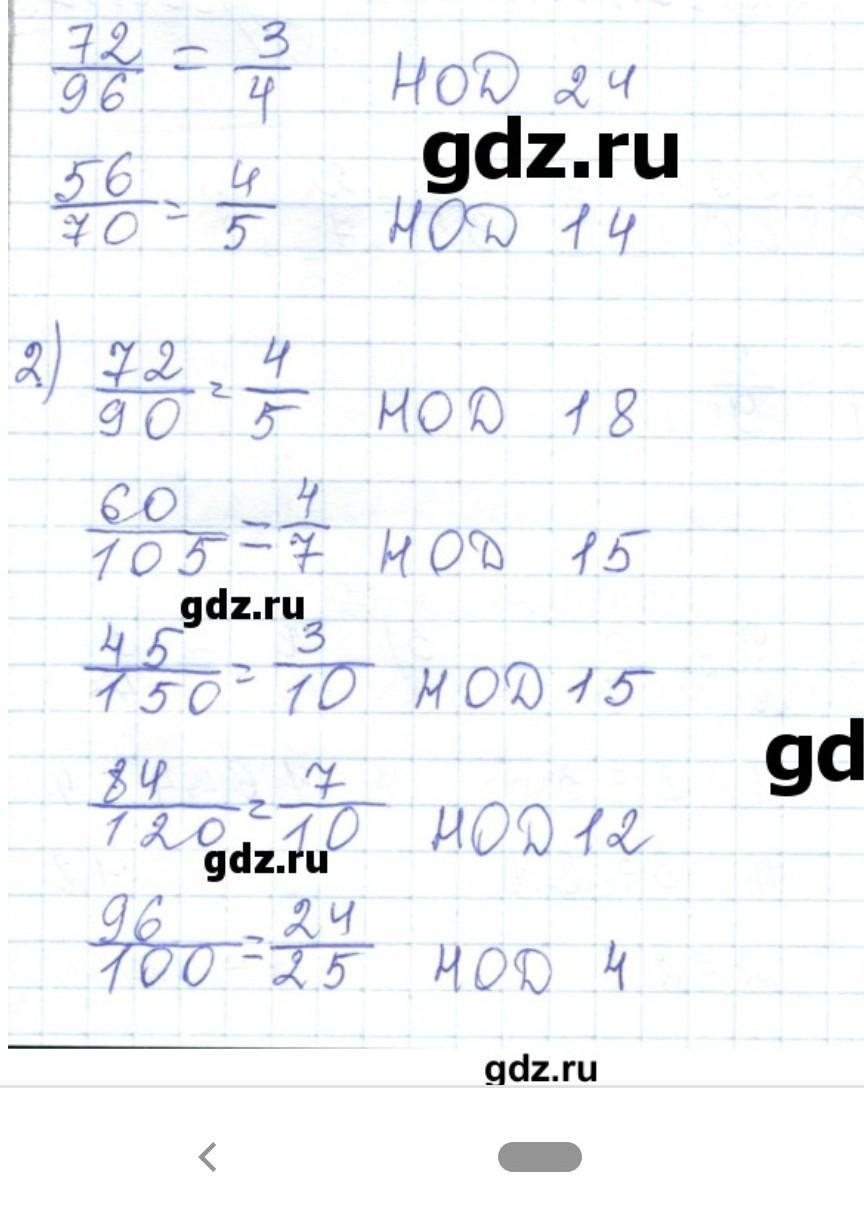 72/96 = 3/4 НОД 24
gdz.ru
56/70 = 4/5 НОД 14
2) 72/90 = 4/5 НОД 18
60/105 = 4/7 НОД 15
gdz.ru
45/150 = 3/10 НОД 15
gd
84/120 = 7/10 НОД 12
gdz.ru
96/100 = 24/25 НОД 4
gdz.ru